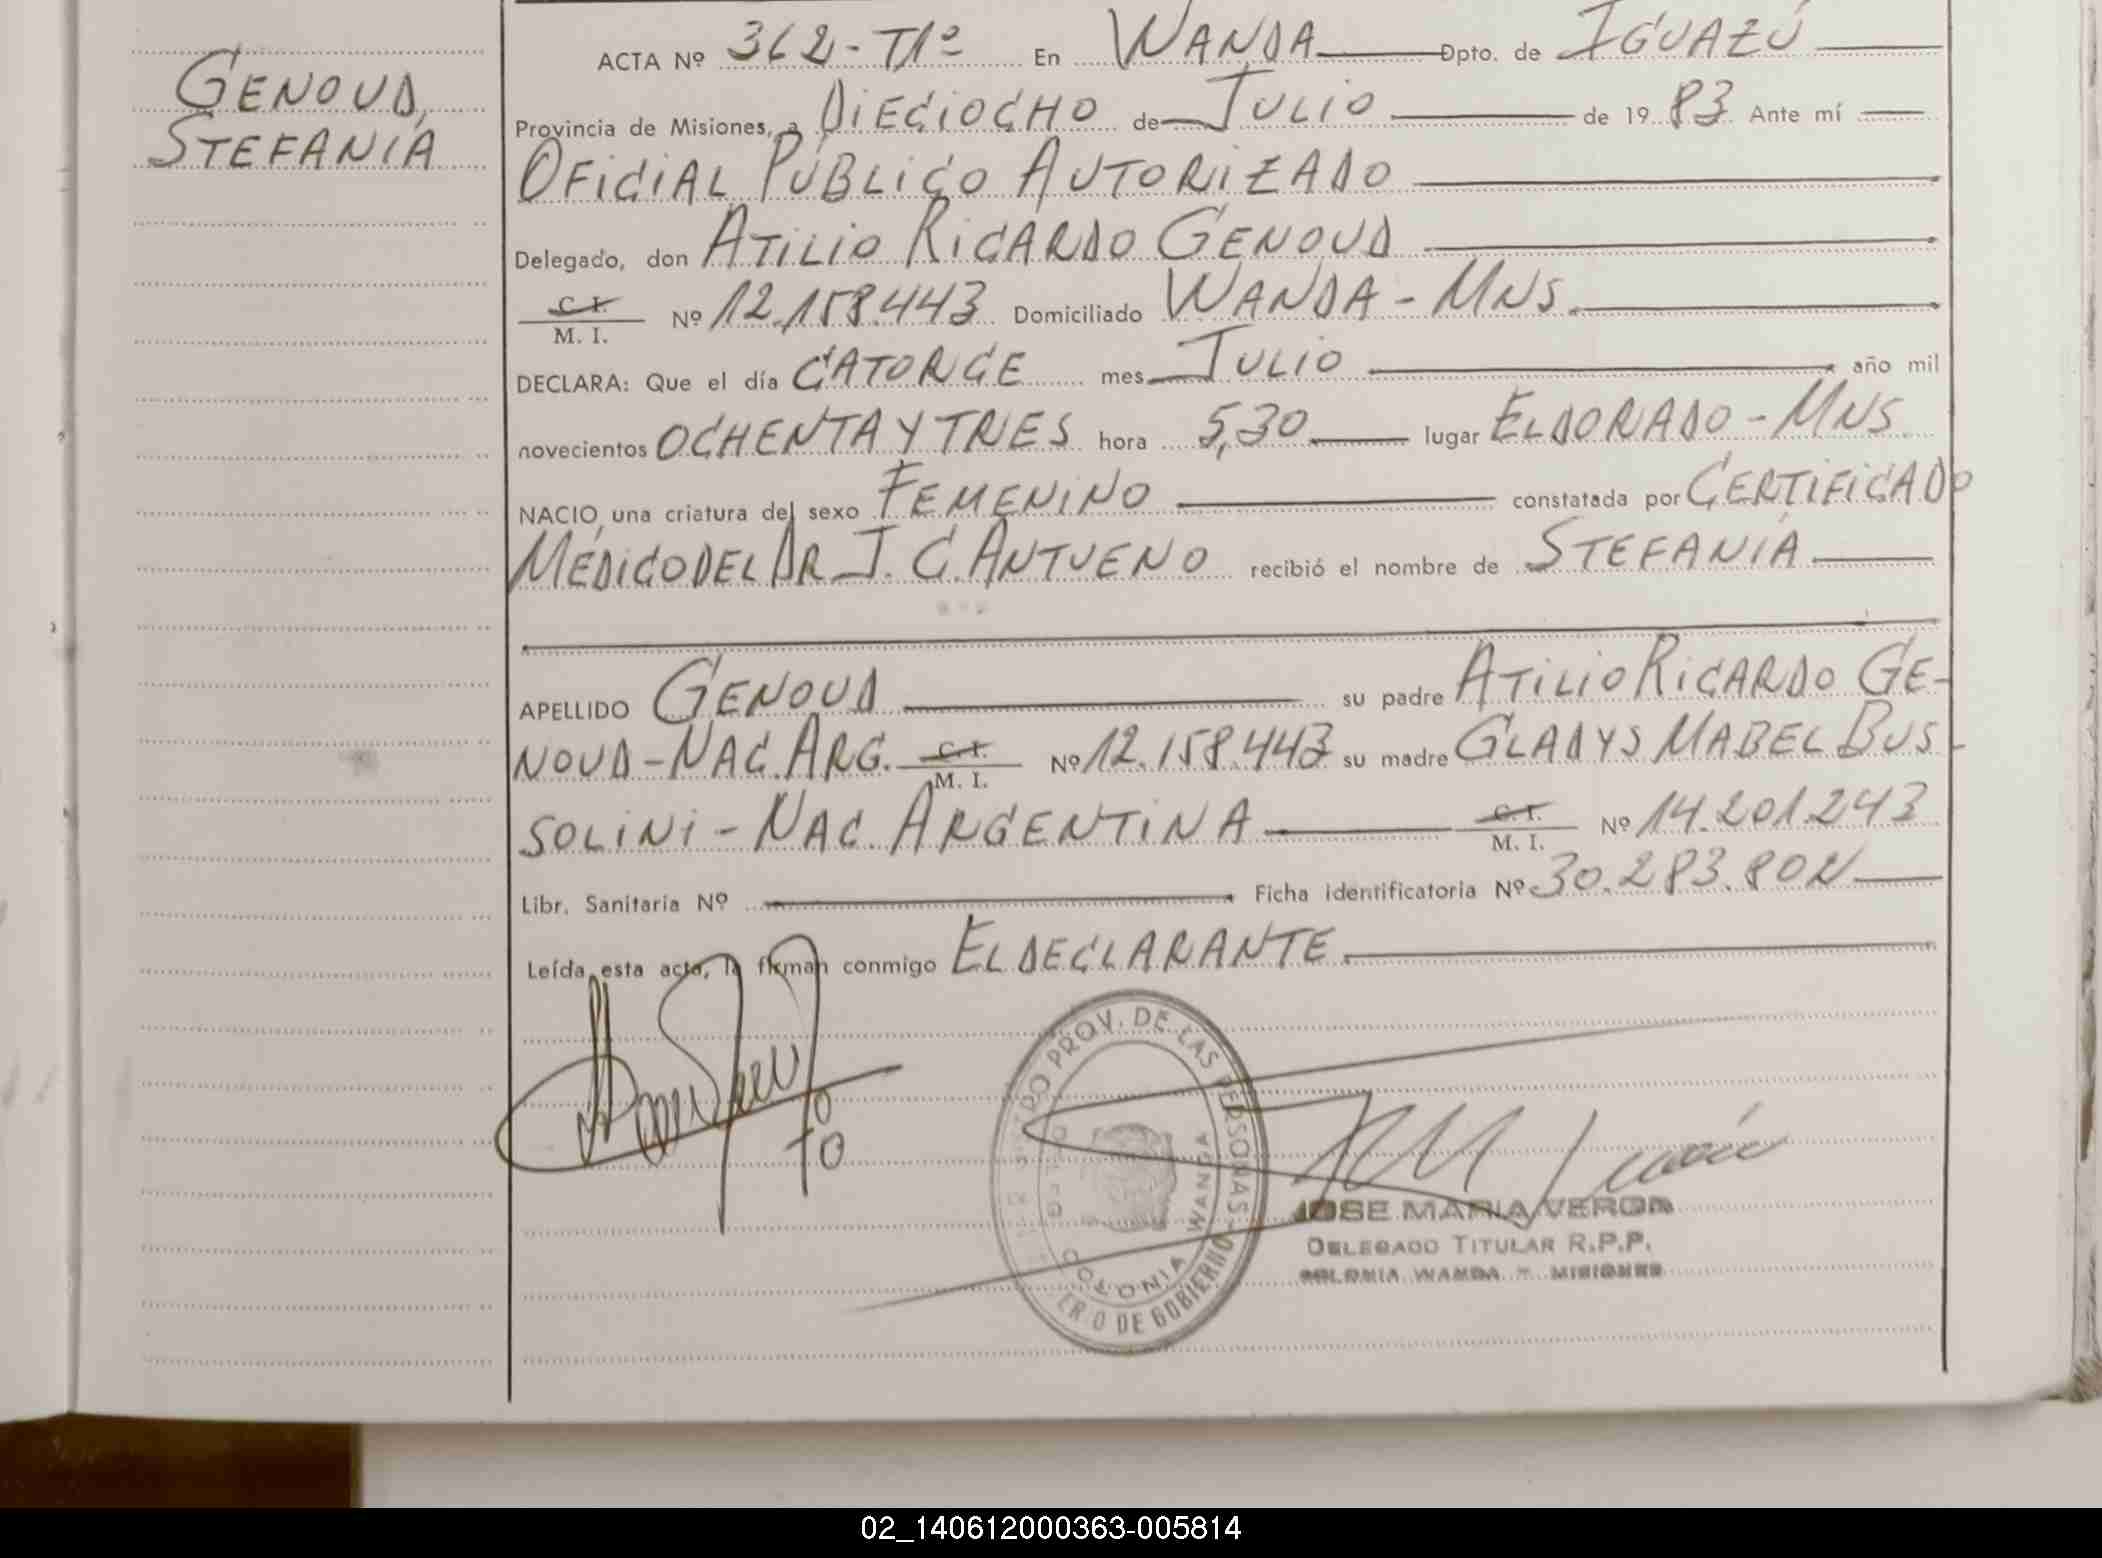 GENOUD,
STEFANÍA
ACTA Nº 362-T1º En WANDA Dpto. de IGUAZÚ
Provincia de Misiones, a DIECIOCHO de JULIO de 1983 Ante mí
OFICIAL PÚBLICO AUTORIZADO
Delegado, don ATILIO RICARDO GENOUD
C. I.
M. I. Nº 12.158.443 Domiciliado WANDA - MNS.
DECLARA: Que el día CATORCE mes JULIO año mil
novecientos OCHENTA Y TRES hora 5,30 lugar ELDORADO - MNS.
NACIO, una criatura del sexo FEMENINO constatada por CERTIFICADO
MÉDICO DEL DR J. C. ANTUENO recibió el nombre de STEFANÍA
APELLIDO GENOUD su padre ATILIO RICARDO GE-
NOUD - NAC. ARG. C. I. M. I. Nº 12.158.443 su madre GLADYS MABEL BUS-
SOLINI - NAC. ARGENTINA C. I. M. I. Nº 14.201.243
Libr. Sanitaria Nº Ficha identificatoria Nº 30.283.802
Leída esta acta, la firman conmigo EL DECLARANTE
PROV. DE LAS PERSONAS
DE GOBIERNO
COLONIA WANDA
JOSE MARIA VERON
DELEGADO TITULAR R.P.P.
COLONIA WANDA - MISIONES
02_140612000363-005814